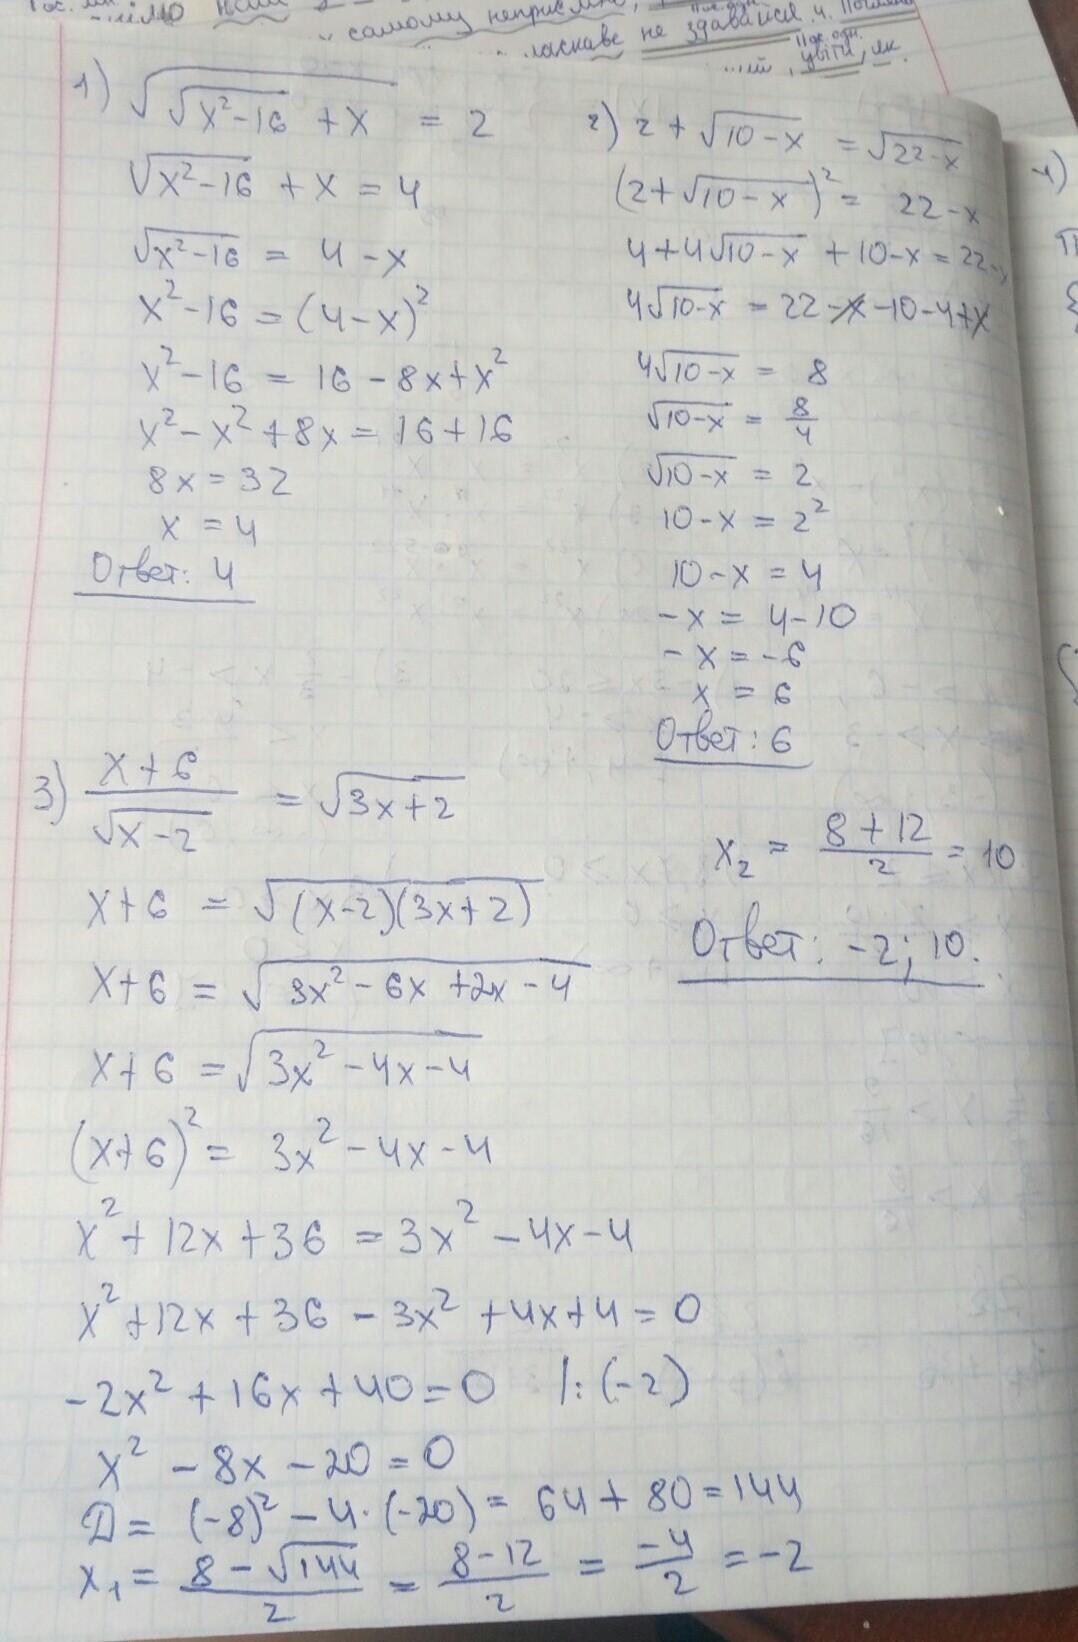 самому неприємно,
ласкаве не здавайся. 4.
цвіти, як
1) √(√(x²-16) + x) = 2
√(x²-16) + x = 4
√(x²-16) = 4 - x
x²-16 = (4-x)²
x²-16 = 16 - 8x + x²
x² - x² + 8x = 16 + 16
8x = 32
x = 4
Ответ: 4
2) 2 + √(10-x) = √(22-x)
(2+√(10-x))² = 22-x
4+4√(10-x) + 10-x = 22-
4√(10-x) = 22-x-10-4+x
4√(10-x) = 8
√(10-x) = 8/4
√(10-x) = 2
10-x = 2²
10-x = 4
-x = 4-10
-x = -6
x = 6
Ответ: 6
3) (x+6)/√(x-2) = √(3x+2)
x+6 = √((x-2)(3x+2))
x+6 = √(3x² - 6x + 2x - 4)
x+6 = √(3x² - 4x - 4)
(x+6)² = 3x² - 4x - 4
x² + 12x + 36 = 3x² - 4x - 4
x² + 12x + 36 - 3x² + 4x + 4 = 0
-2x² + 16x + 40 = 0 |:(-2)
x² - 8x - 20 = 0
D = (-8)² - 4·(-20) = 64 + 80 = 144
x₁ = (8 - √144)/2 = (8-12)/2 = -4/2 = -2
x₂ = (8+12)/2 = 10
Ответ: -2; 10.
4)